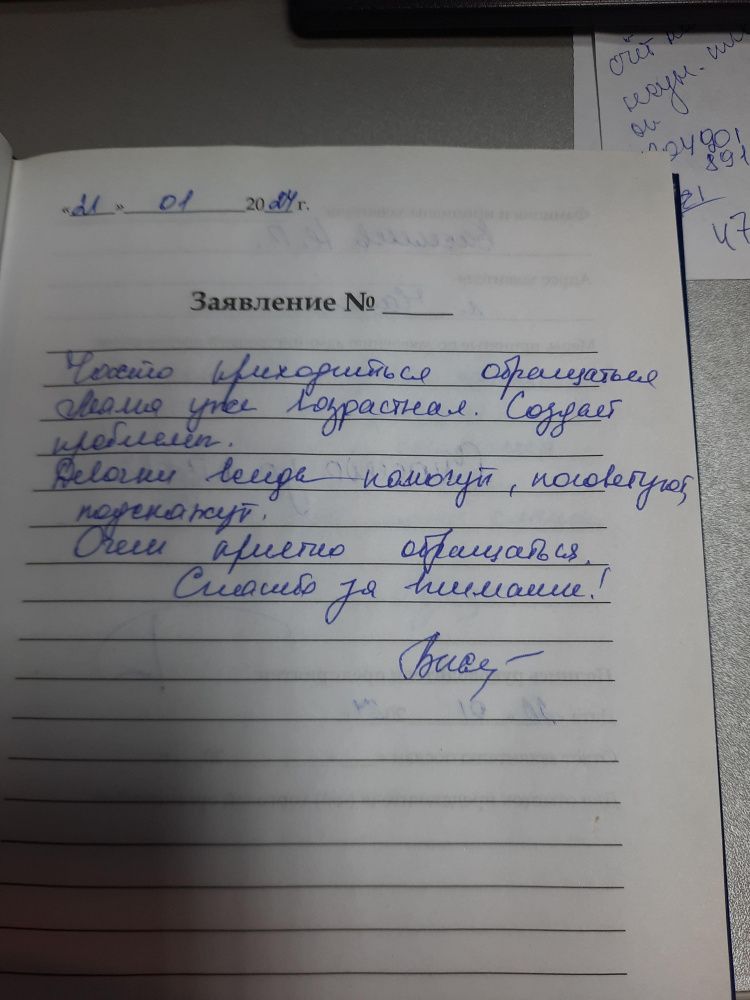 «21» 01 2024 г.
Заявление №
Часто приходиться обращаться
Мама уже возрастная. Создает
проблемы.
Девочки всегда помогут, посоветуют,
подскажут.
Очень приятно обращаться.
Спасибо за внимание!
счёт
24901
891
21
47